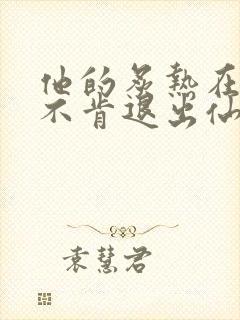 他的炙热在
不肯退出仙
袁慧君